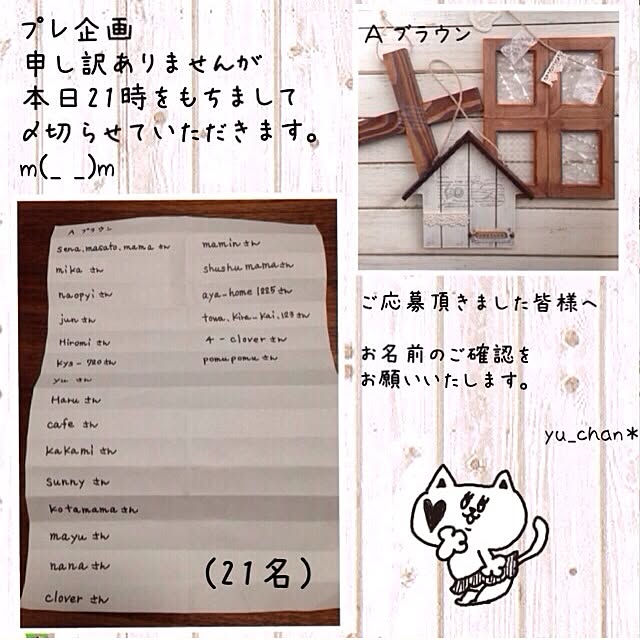 プレ企画
申し訳ありませんが
本日21時をもちまして
〆切らせていただきます。
m(_ _)m
A ブラウン
A ブラウン
sena.masato.mama さん
mika さん
naopyi さん
jun さん
Hiromi さん
kys-720 さん
yu さん
Haru さん
cafe さん
kakami さん
sunny さん
kotamama さん
mayu さん
nana さん
clover さん
mamin さん
shushu mama さん
aya-home 1225 さん
towa.kira-kai.123 さん
4-clover さん
pomupomu さん
(21名)
ご応募頂きました皆様へ
お名前のご確認を
お願いいたします。
yu_chan*